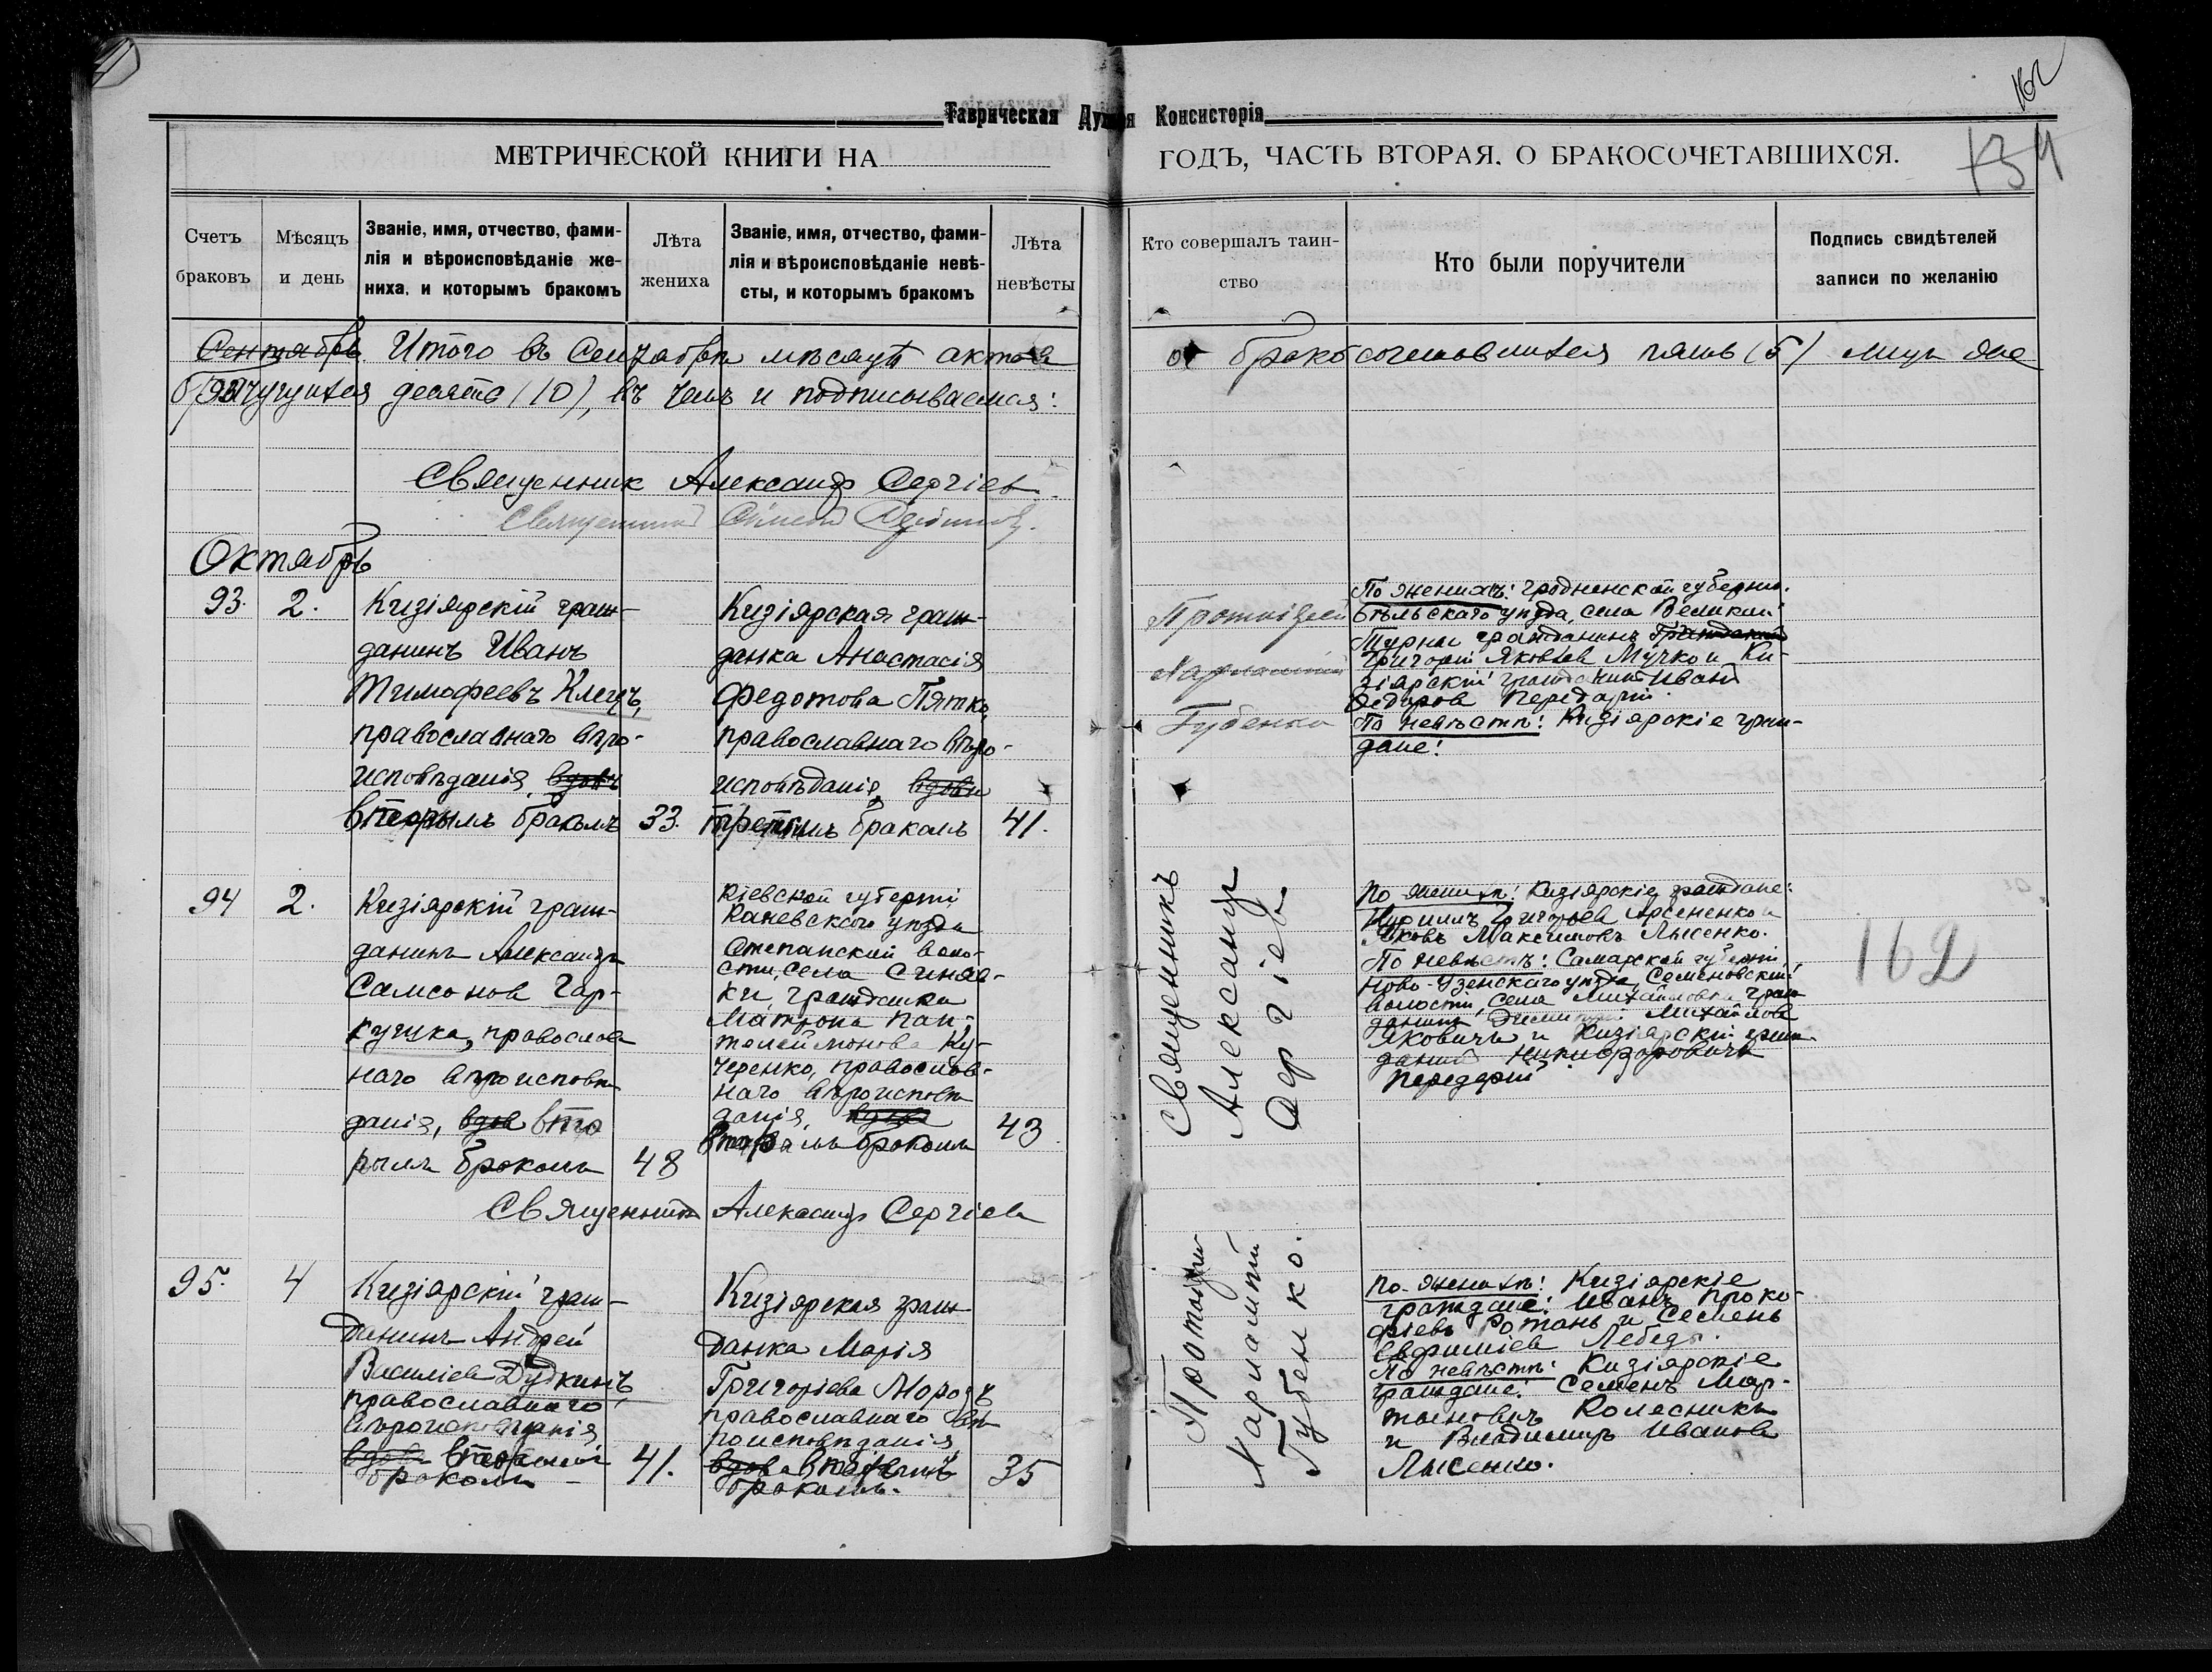 162
134
Таврическая Духовная Консисторія
МЕТРИЧЕСКОЙ КНИГИ НА ГОДЪ, ЧАСТЬ ВТОРАЯ, О БРАКОСОЧЕТАВШИХСЯ.
Счетъ браковъ
Мѣсяцъ и день
Званіе, имя, отчество, фами-
лія и вѣроисповѣданіе же-
ниха, и которымъ бракомъ
Лѣта жениха
Званіе, имя, отчество, фами-
лія и вѣроисповѣданіе невѣ-
сты, и которымъ бракомъ
Лѣта невѣсты
Кто совершалъ таин-
ство
Кто были поручители
Подпись свидѣтелей
записи по желанію
Сентябрь Итого въ Сентябрѣ мѣсяцѣ актовъ о бракосочетавшихся пять (5) лицъ
десять (10), въ чемъ и подписываемся:
Священник Александр Сергіев
Священник
Октябрь
93. 2.
Кизіярскій граж-
данинъ Иванъ
Тимофеевъ Клецъ,
православнаго вѣро-
исповѣданія, вдовъ
вторымъ бракомъ
33.
Кизіярская граж-
данка Анастасія
Федотова Пятко,
православнаго вѣро-
исповѣданія, вдова
третьимъ бракомъ
41.
Протоіерей
Харлампій
Губенко
По женихѣ: Гродненской губерніи
Бѣльскаго уѣзда, села Великий
Турна гражданинъ
Григорій Яковлев Мучко и Ки-
зіярскій гражданин Иван
Федоров Передерій.
По невѣстѣ: Кизіярскіе граж-
дане:
94 2.
Кизіярскій граж-
данинъ Александръ
Самсонов Гар-
куша, православ-
наго вѣроисповѣ-
данія, вдов вто-
рымъ бракомъ
48
Кіевской губерніи
Каневскаго уѣзда
Степанской воло-
сти, села Синяв-
ки, гражданка
Матрона Пан-
телеймонова Ку-
черенко, православ-
наго вѣроисповѣ-
данія, вдова
вторымъ бракомъ
43
Священникъ
Александр
Сергіев
По женихѣ: Кизіярскіе граждане:
Григорьев Арсененко и
Яковъ Максимовъ Лысенко.
По невѣстѣ: Самарской губерніи,
Ново-Узенскаго уѣзда, Семеновской
волости, села Михайловки граж-
данинъ Димитрій Михайлов
Яковичъ и Кизіярскій граж-
данин Никифоровичъ
Передерій.
162
Священник Александр Сергіев
95. 4
Кизіярскій граж-
данинъ Андрей
Василіев Дудкинъ,
православнаго
вѣроисповѣданія
вдовъ вторымъ
бракомъ
41.
Кизіярская граж-
данка Марія
Григоріева Морозъ
православнаго вѣ-
роисповѣданія,
вдова
бракомъ.
35
Протоіерей
Харлампій
Губенко.
По женихѣ: Кизіярскіе
граждане: Иванъ Проко-
фіевъ Ротань и Семенъ
Евфиміев Лебедь.
По невѣстѣ: Кизіярскіе
граждане: Семенъ Мар-
тынович Колесникъ
и Владимир Иванов
Лысенко.